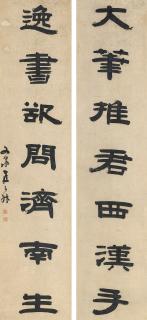 大筆推君西漢手
逸書欲問濟南生